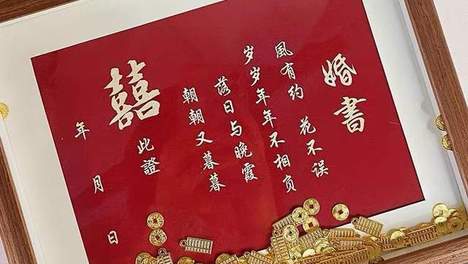 婚書
風有約 花不误
岁岁年年不相负
落日与晚霞
朝朝又暮暮
此證
囍
年 月 日